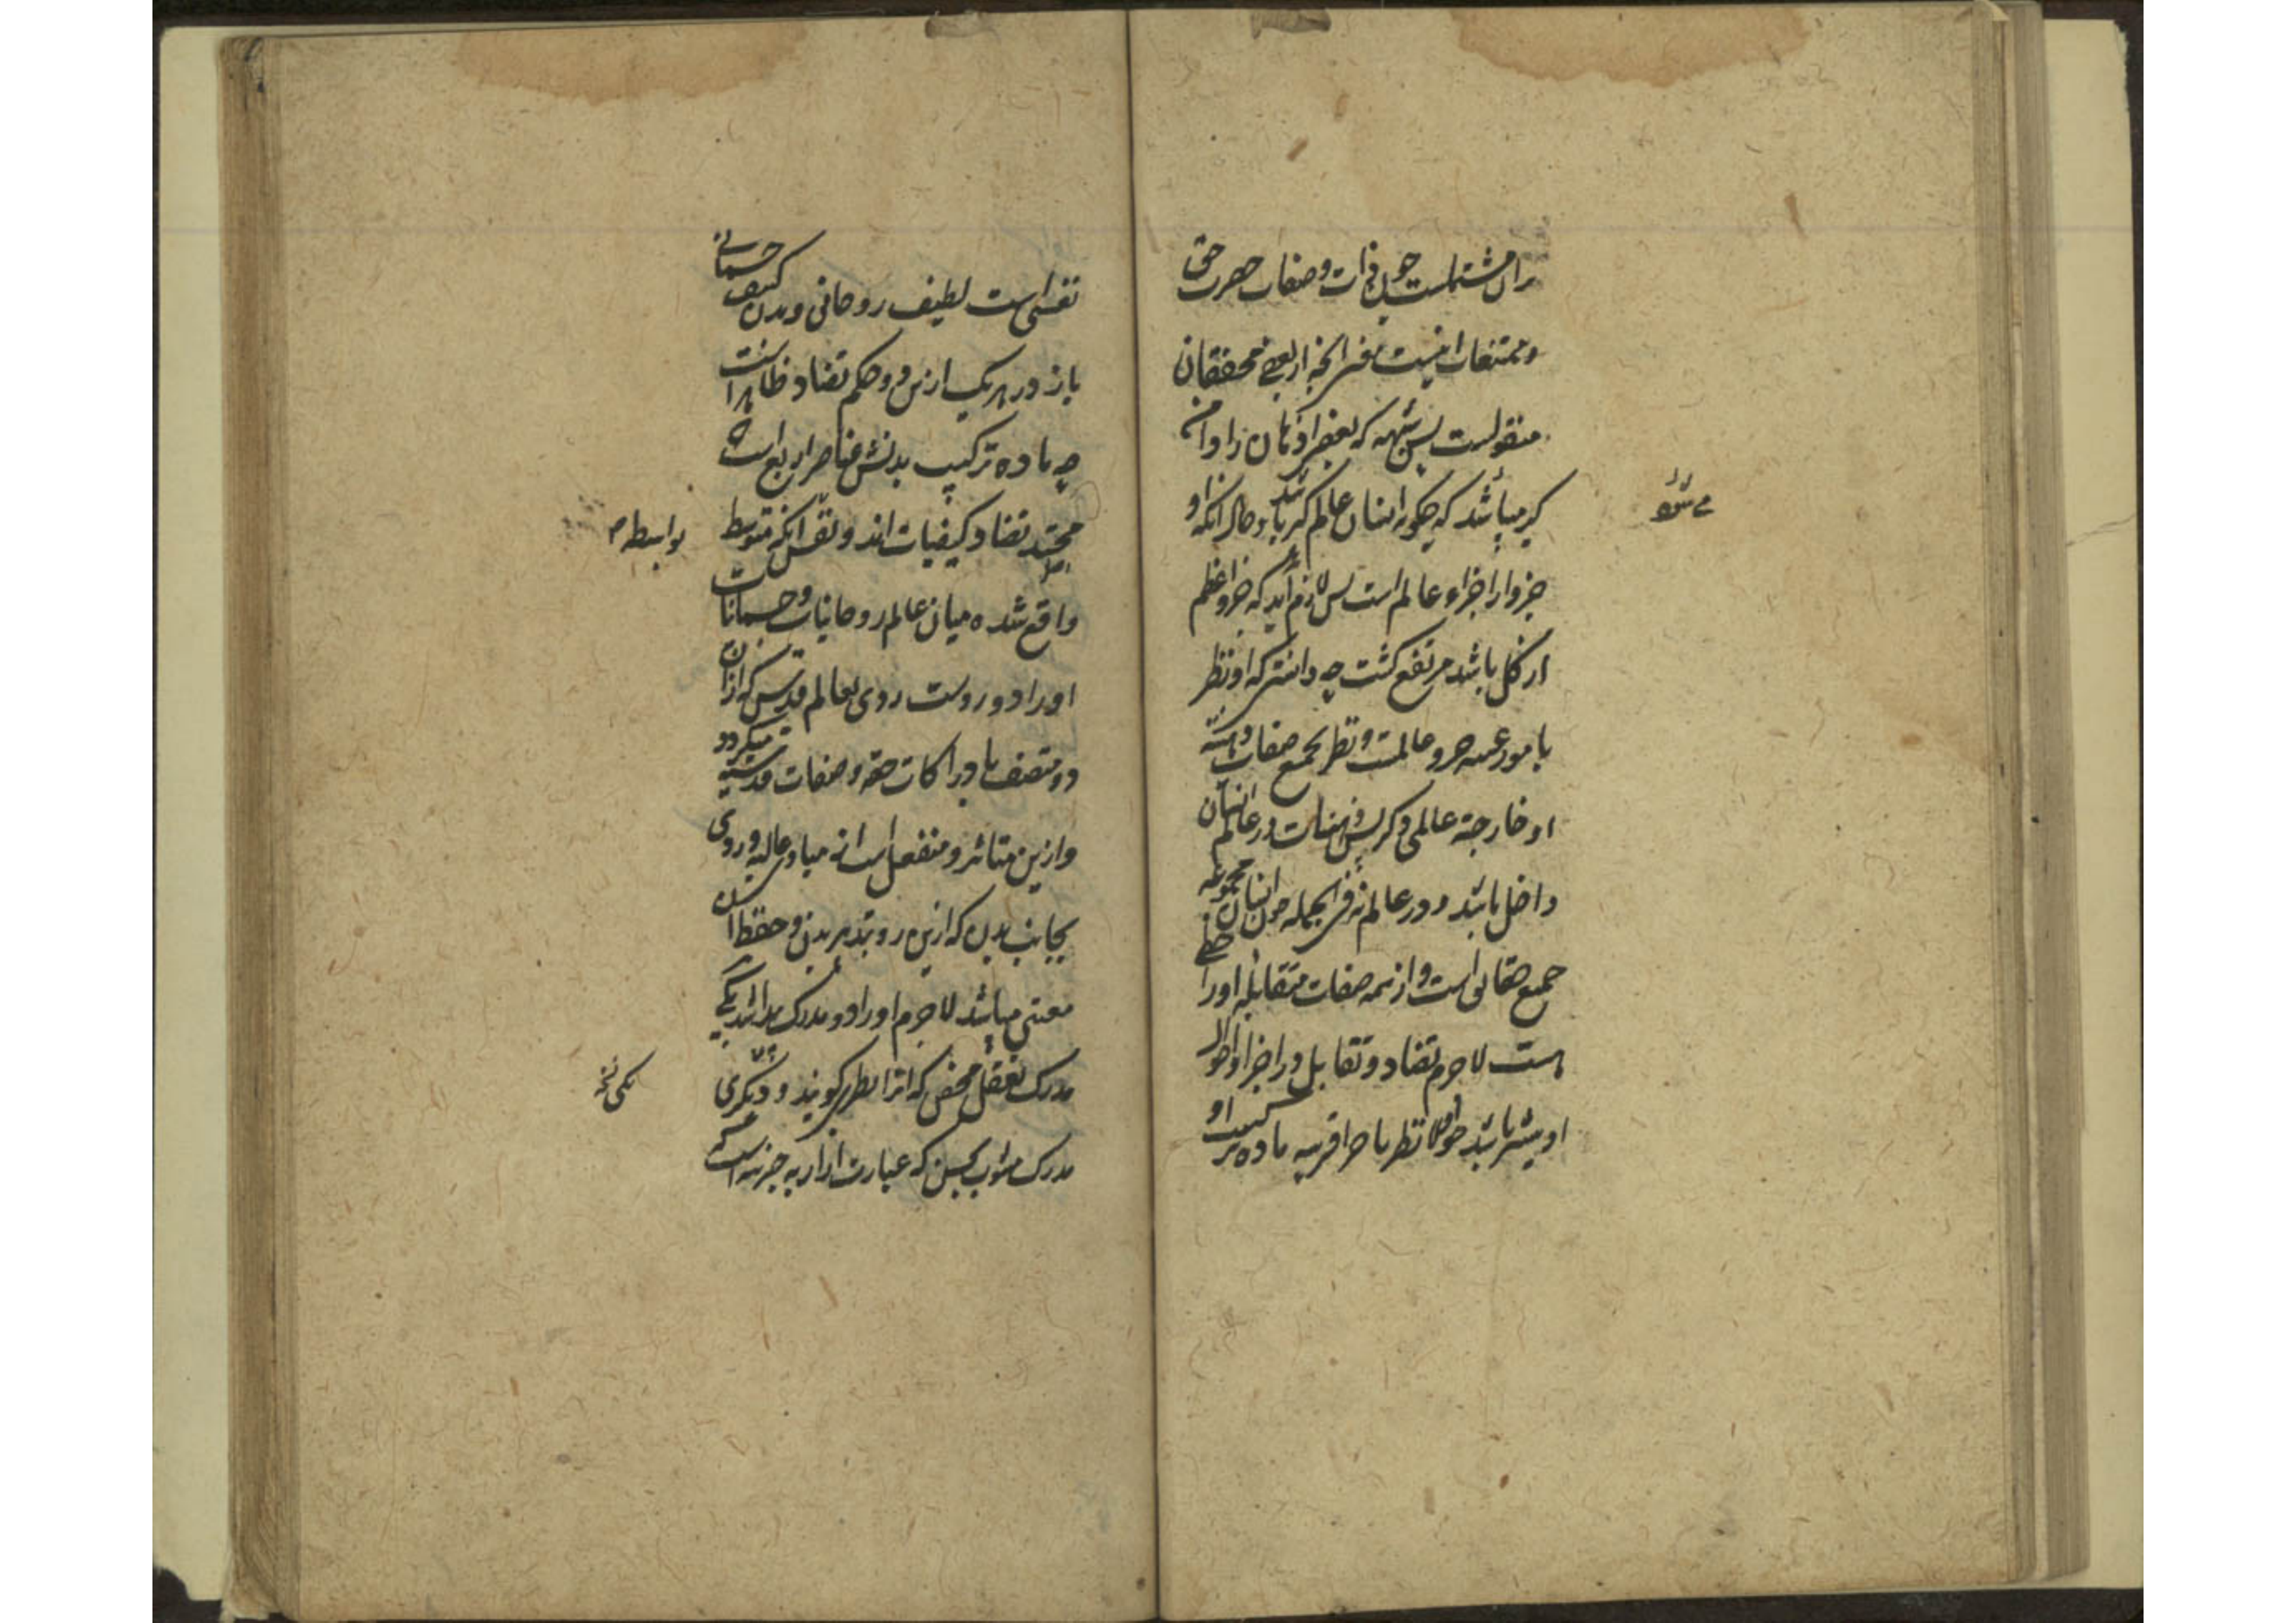 بران مشتملست چون ذات و صفات حضرت حق
و ممتنعات انیست نفس انچه از بعضی محققان
منقولست پس شبهه که بعضی اذهان را دامن
کیر میباشد که چکونه انسان عالم کبیر باشد و حال آنکه او
جزو از اجزاء عالم است پس لازم آید که جزو اعظم
از کل باشد مرتفع کشت چه دانستی که او نظر
با مور عینیه جزو عالمست و نظر بجمیع صفات
او خارجة عالمی دیکر پس و در عالم انسان
داخل باشد و در عالم نه فی الجمله چون انسان مجموعه
جمیع حقایق است و از همه صفات متقابله او را حظی
هست لاجرم تضاد و تقابل در اجزا و احوال
او بیشتر باشد چه اولا نظر با جزا قریبه ماده ترکیب او
می شود
نفسی است لطیف روحانی و بدن کثیف جسمانی
باز در هر یک ازین دو حکم تضاد ظاهر است
چه ماده ترکیب بدنش عناصر اربع است که
تضاد کیفیات اند و نفس آنکه متوسط
بواسطه
واقع شده میان عالم روحانیات و جسمانیات
او را دو روست روی بعالم قدس که از آن
رو متصف بادراکات حقه و صفات قدسیه میکردد
و ازین متاثر و منفعل است از مبادی عالیه و روی
بجانب بدن که ازین رو بتدبیر بدن و حفظ آن
معتنی میباشد لاجرم او را دو مدرک باشد یکی
مدرک تعقل محض که آنرا نظری کویند و دیکری
یکی نسخه
مدرک مشوب بحس که عبارت از جزئیه است